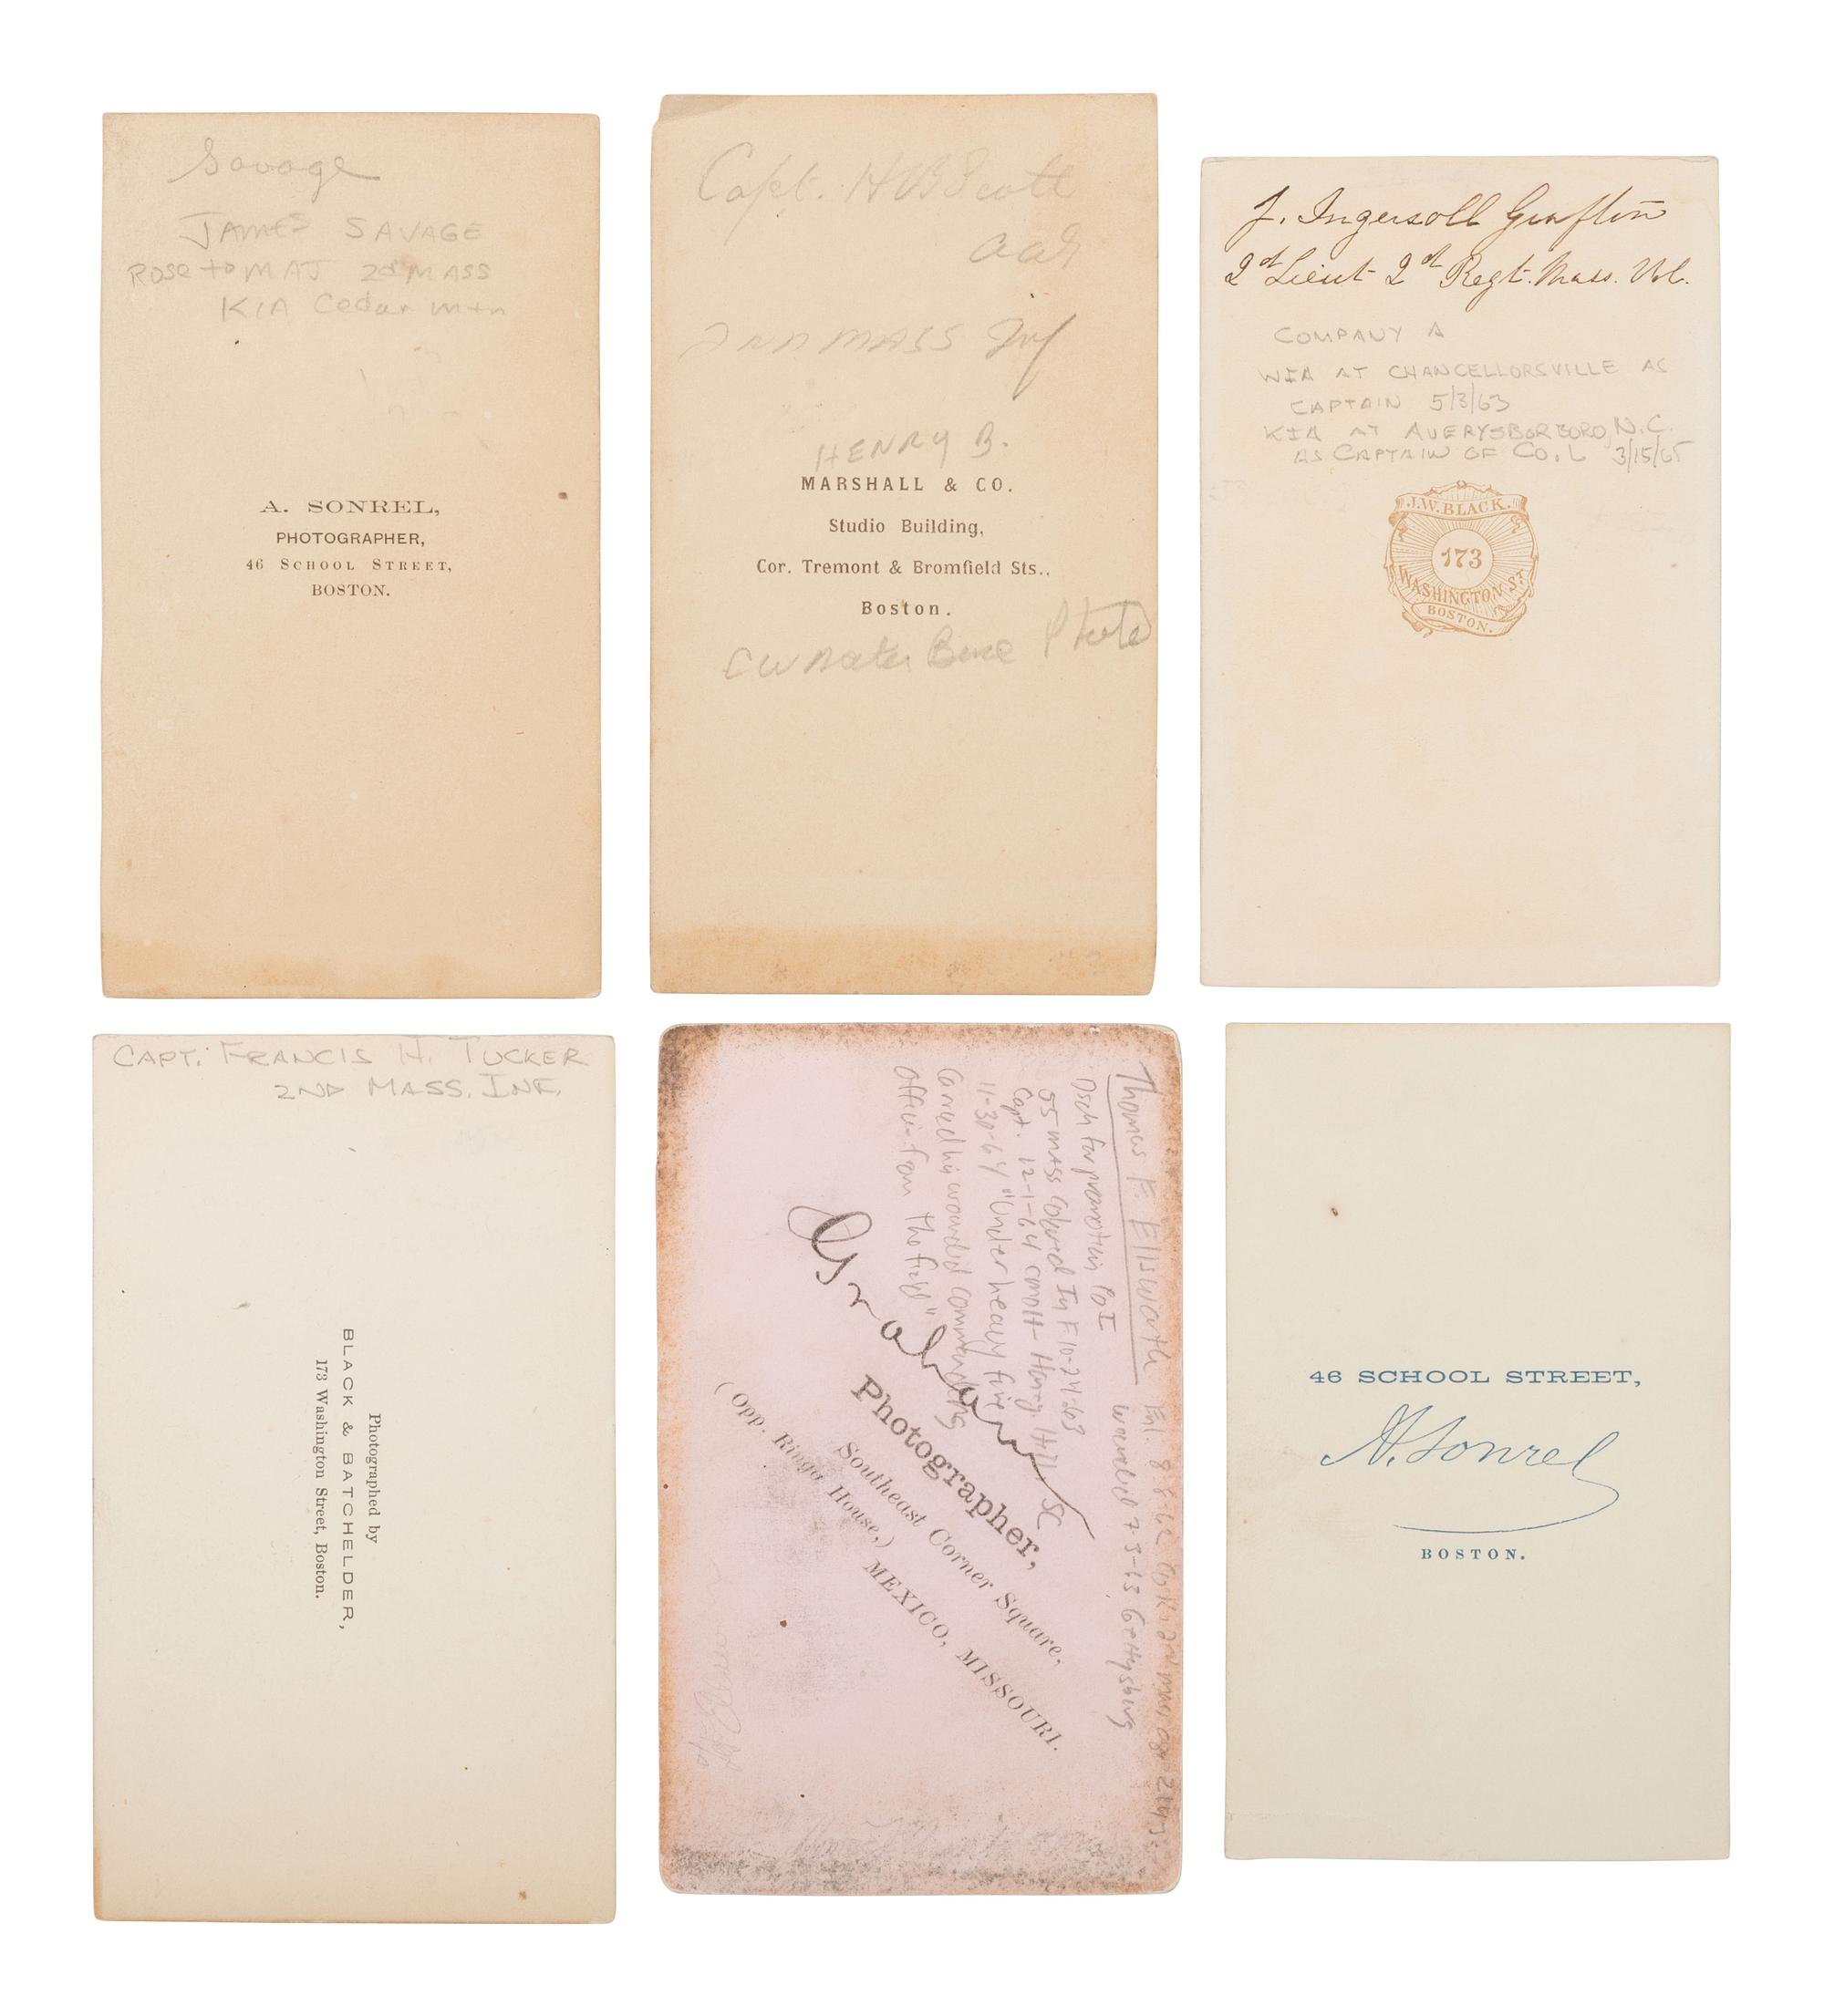 Savage
JAMES SAVAGE
Rose to MAJ 2d MASS
KIA Cedar mtn
A. SONREL,
PHOTOGRAPHER,
46 SCHOOL STREET,
BOSTON.
Capt. HB Scott
2nd MASS Inf
HENRY B.
MARSHALL & CO.
Studio Building,
Cor. Tremont & Bromfield Sts.,
Boston.
CW Photo
J. Ingersoll Grafton
2d Lieut 2d Regt. Mass. Vol.
COMPANY A
WIA AT CHANCELLORSVILLE AS
CAPTAIN 5/3/63
KIA AT AVERYSBORBORO, N.C.
AS CAPTAIN OF CO. L 3/15/65
J.W. BLACK.
173
WASHINGTON ST.
BOSTON.
CAPT. FRANCIS H. TUCKER
2ND MASS. INF.
Photographed by
BLACK & BATCHELDER,
173 Washington Street, Boston.
Thomas F. Ellsworth Enl. 8-8-62
wounded 7-3-63 Gettysburg
Dsch for promotion
55 mass Colored Inf 10-24-63
Capt. 12-1-64 Honey Hill SC
11-30-64 "Under heavy fire
Carried his wounded commanding
officer from the field"
Graham
Photographer,
Southeast Corner Square,
(Opp. Ringo House,) MEXICO, MISSOURI.
46 SCHOOL STREET,
A. Sonrel
BOSTON.